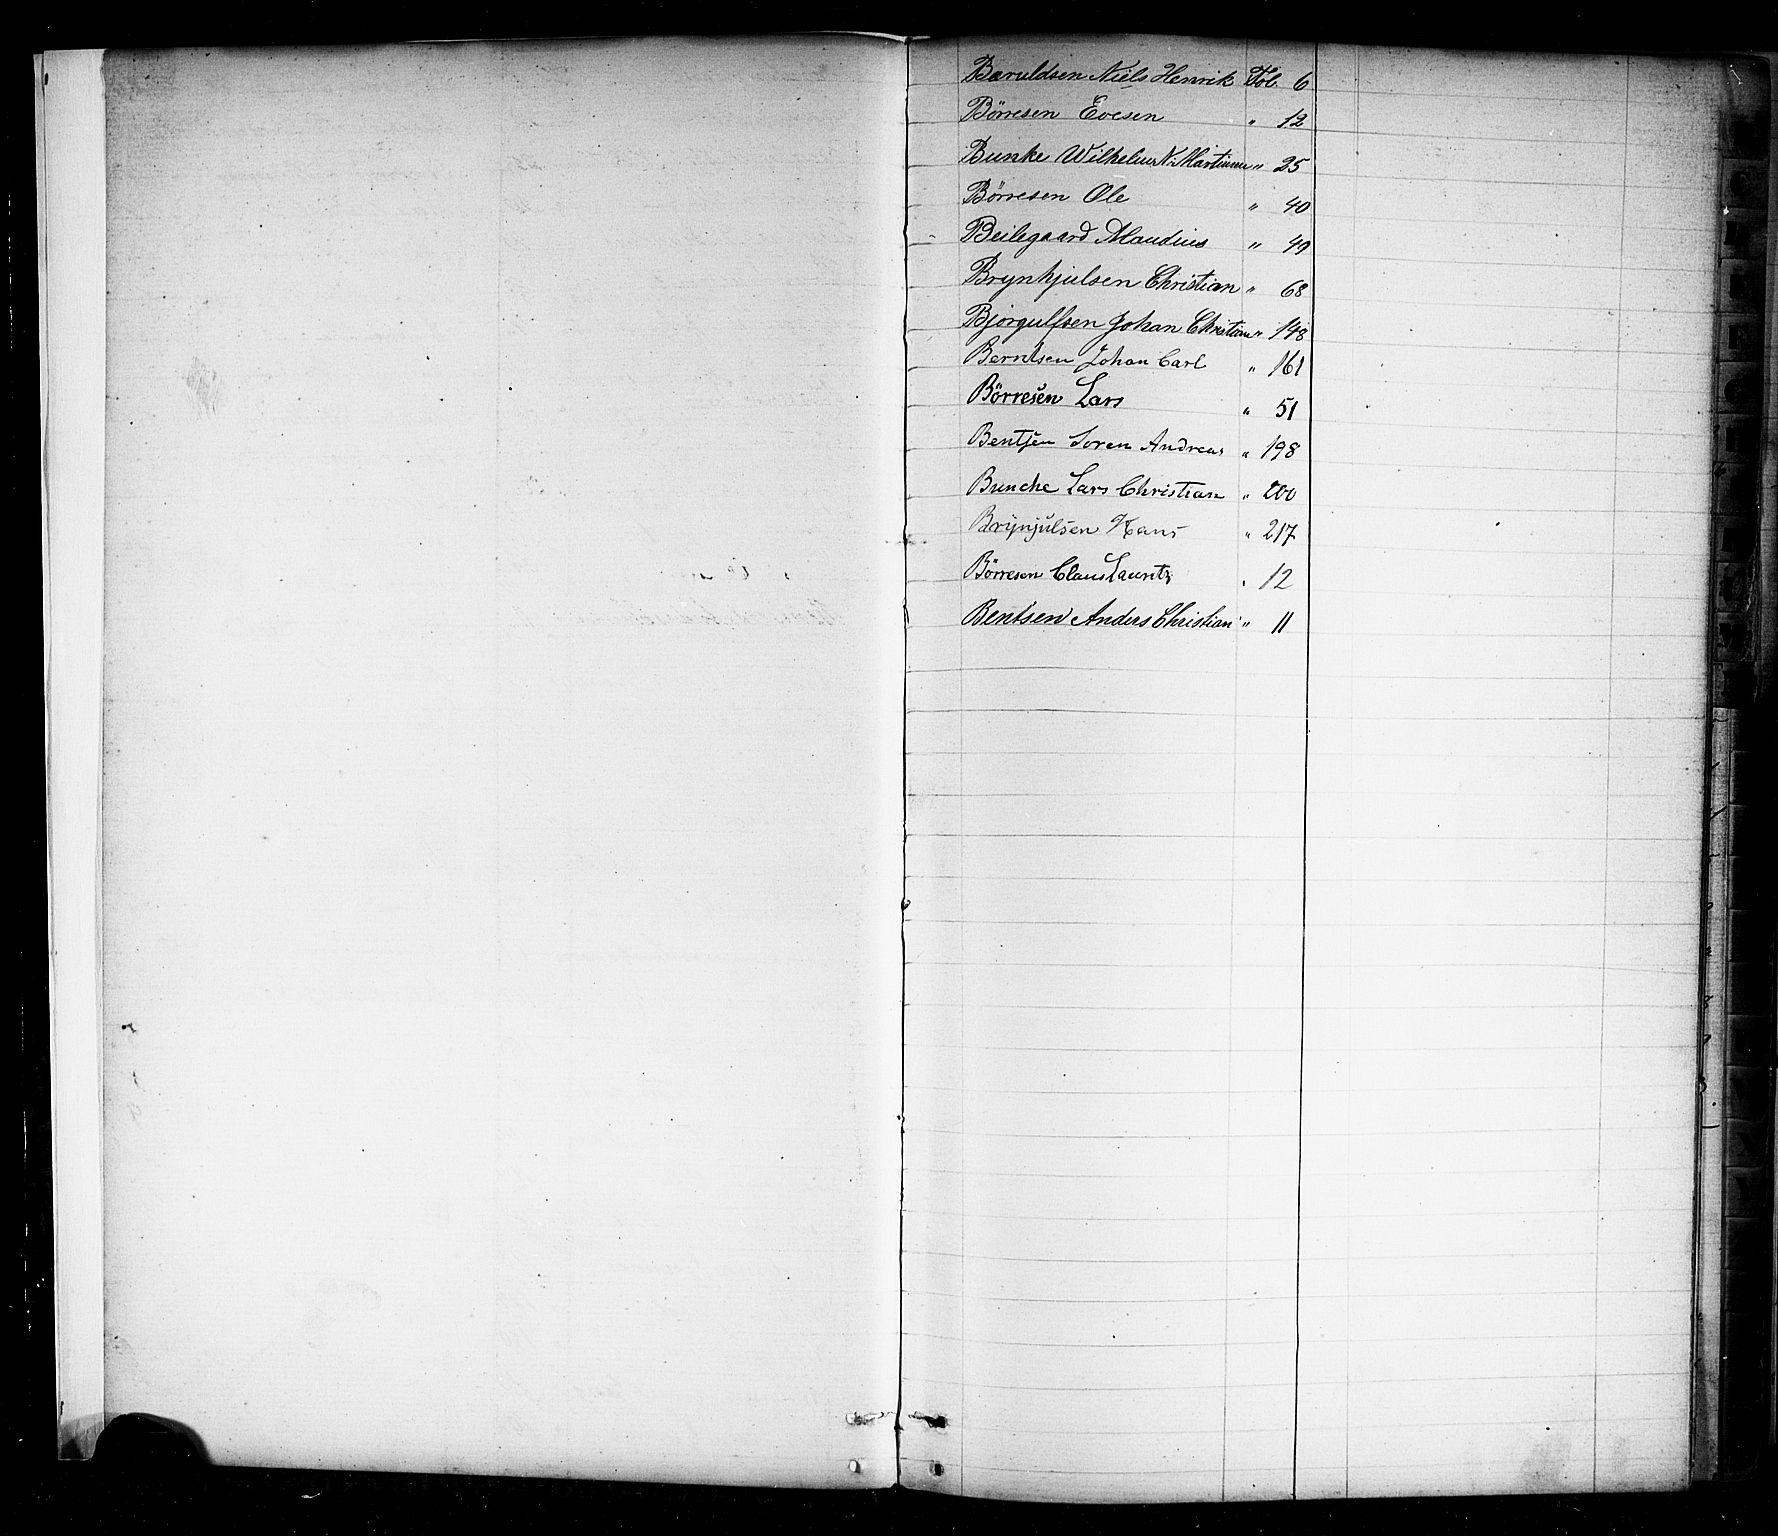 Baruldsen Niels Henrik Fol. 6
Börresen Evesen " 12
Bunke Wilhelm N. " 25
Börresen Ole " 40
Beilegaard Maudius " 49
Brynhjulsen Christian " 68
Bjorgulfsen Johan Christian " 148
Berntsen Johan Carl " 161
Börresen Lars " 51
Bentsen Soren Andreas " 198
Bunche Lars Christian " 200
Brynjulsen Hans " 217
Börresen Claus Lauritz " 12
Bentsen Anders Christian " 11